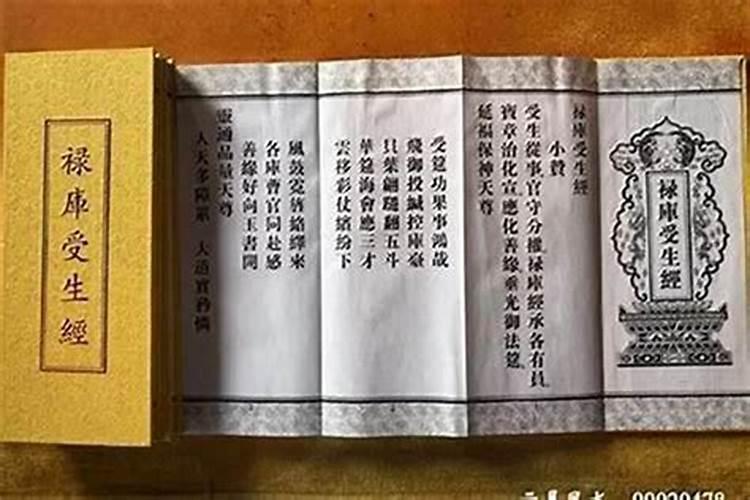 禄庫受生經
禄庫受生經
禄庫受生經
小贊
受生從事官守分權禄庫經承各有員
寶章治化宣應化善緣垂光御法筵
延福保神天尊
受筵功果事鴻哉
飛御投緘控庫臺
貝葉翩翻五斗
華筵海會應三才
雲移彩仗繽紛下
風鼓霓旌絡繹來
各庫曹官同赴感
善緣好向玉書開
靈通品量天尊
人天多障
大道